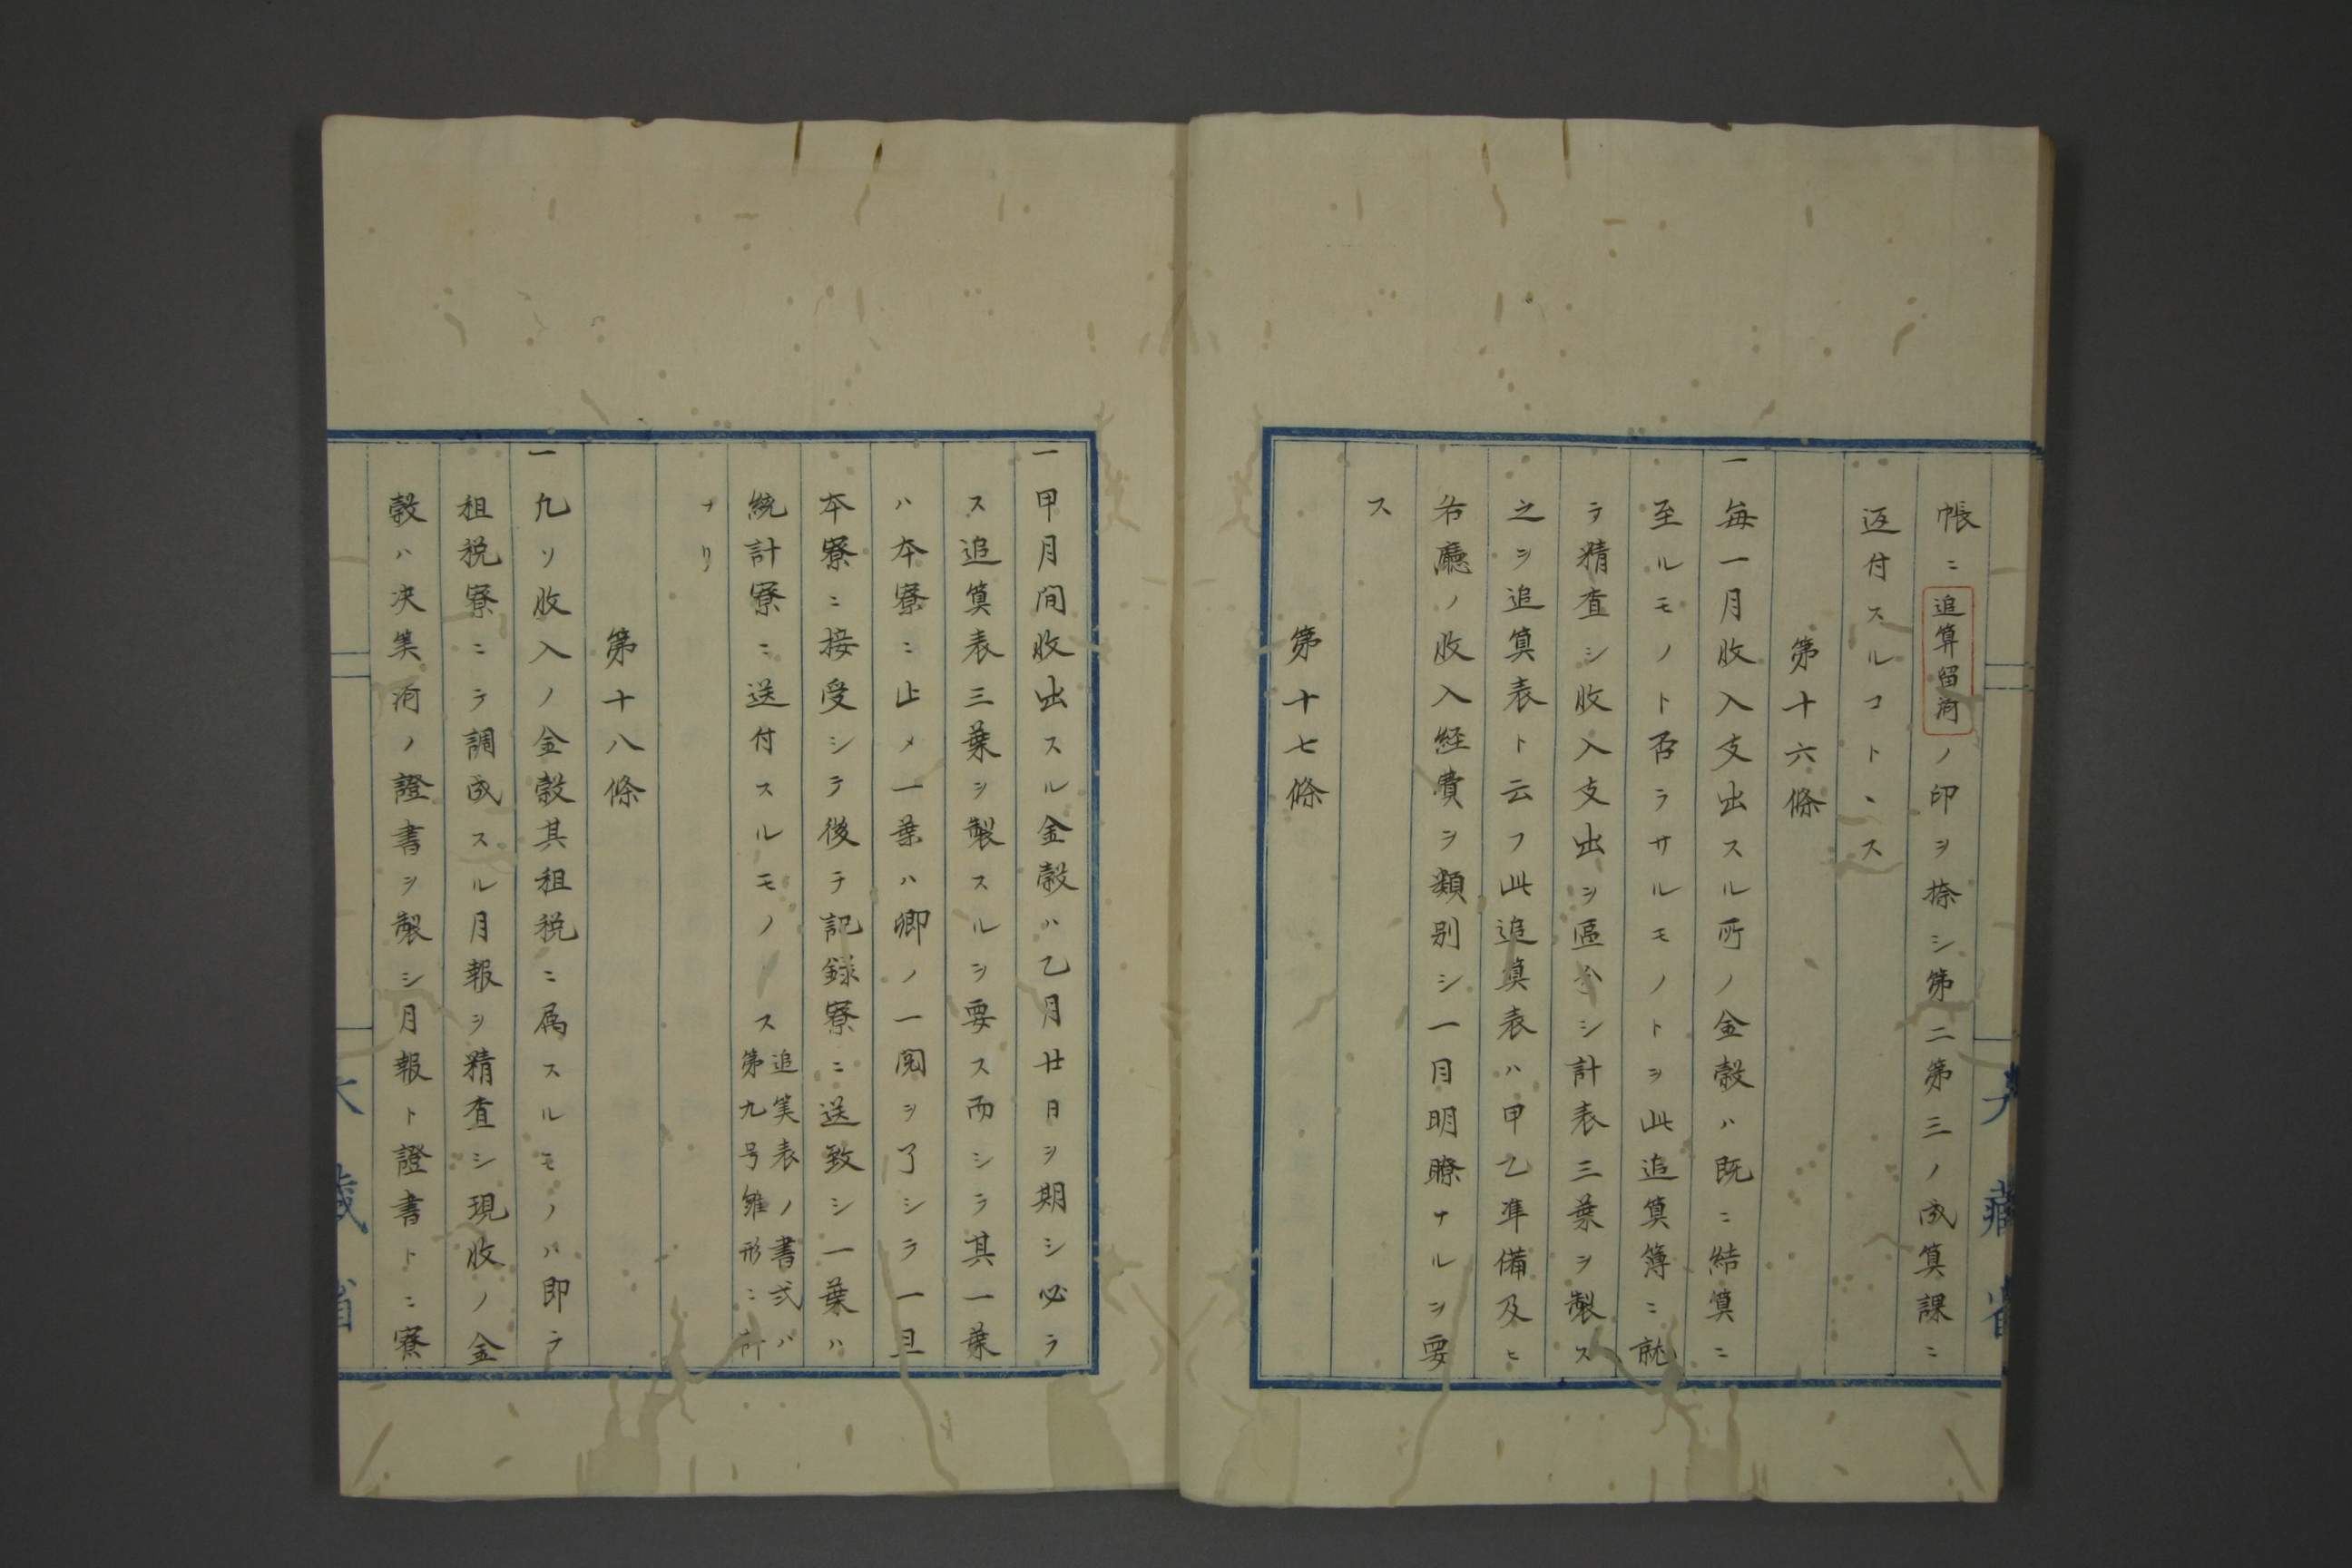 帳ニ追算留済ノ印ヲ捺シ第二第三ノ成算課ニ
返付スルコトヽス
第十六條
一毎一月收入支出スル所ノ金穀ハ既ニ結算ニ
至ルモノト否ラサルモノトヲ此追算簿ニ就
テ精査シ收入支出ヲ區分シ計表三葉ヲ製ス
之ヲ追算表ト云フ此追算表ハ甲乙準備及ヒ
各廳ノ收入経費ヲ類別シ一目明瞭ナルヲ要
ス
第十七條
大藏省
一甲月間收出スル金穀ハ乙月廿日ヲ期シ必ラ
ス追算表三葉ヲ製スルヲ要ス而シテ其一葉
ハ本寮ニ止メ一葉ハ卿ノ一閲ヲ了シテ一旦
本寮ニ接受シテ後チ記録寮ニ送致シ一葉ハ
統計寮ニ送付スルモノトス追算表ノ書式ハ
第九号雛形ニ詳
ナリ
第十八條
一凡ソ收入ノ金穀其租税ニ属スルモノハ即チ
租税寮ニテ調成スル月報ヲ精査シ現收ノ金
穀ハ决算済ノ證書ヲ製シ月報ト證書トニ寮
大藏省